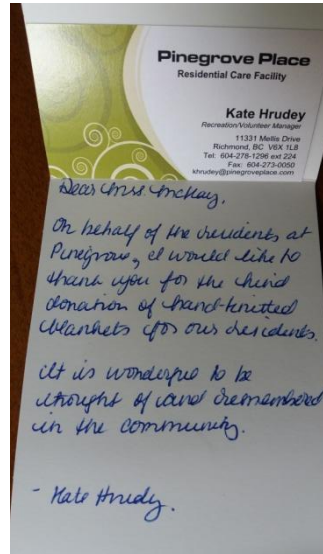 Pinegrove Place
Residential Care Facility
Kate Hrudey
Recreation/Volunteer Manager
11331 Mellis Drive
Richmond, BC V6X 1L8
Tel: 604-278-1296 ext 224
Fax: 604-273-0050
khrudey@pinegroveplace.com
Dear Miss McKay,
On behalf of the residents at
Pinegrove, I would like to
thank you for the kind
donation of hand-knitted
blankets for our residents.
It is wonderful to be
thought of and remembered
in the community.
- Kate Hrudey.